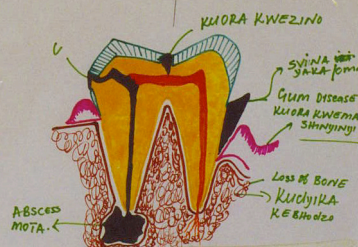 KUORA KWEZINO
SVINA
YAKA
GUM DISEASE
KUORA KWEMA
SHINYINYI
LOSS OF BONE
KUDYIKA
KEBHODZO
ABSCESS
MOTA.